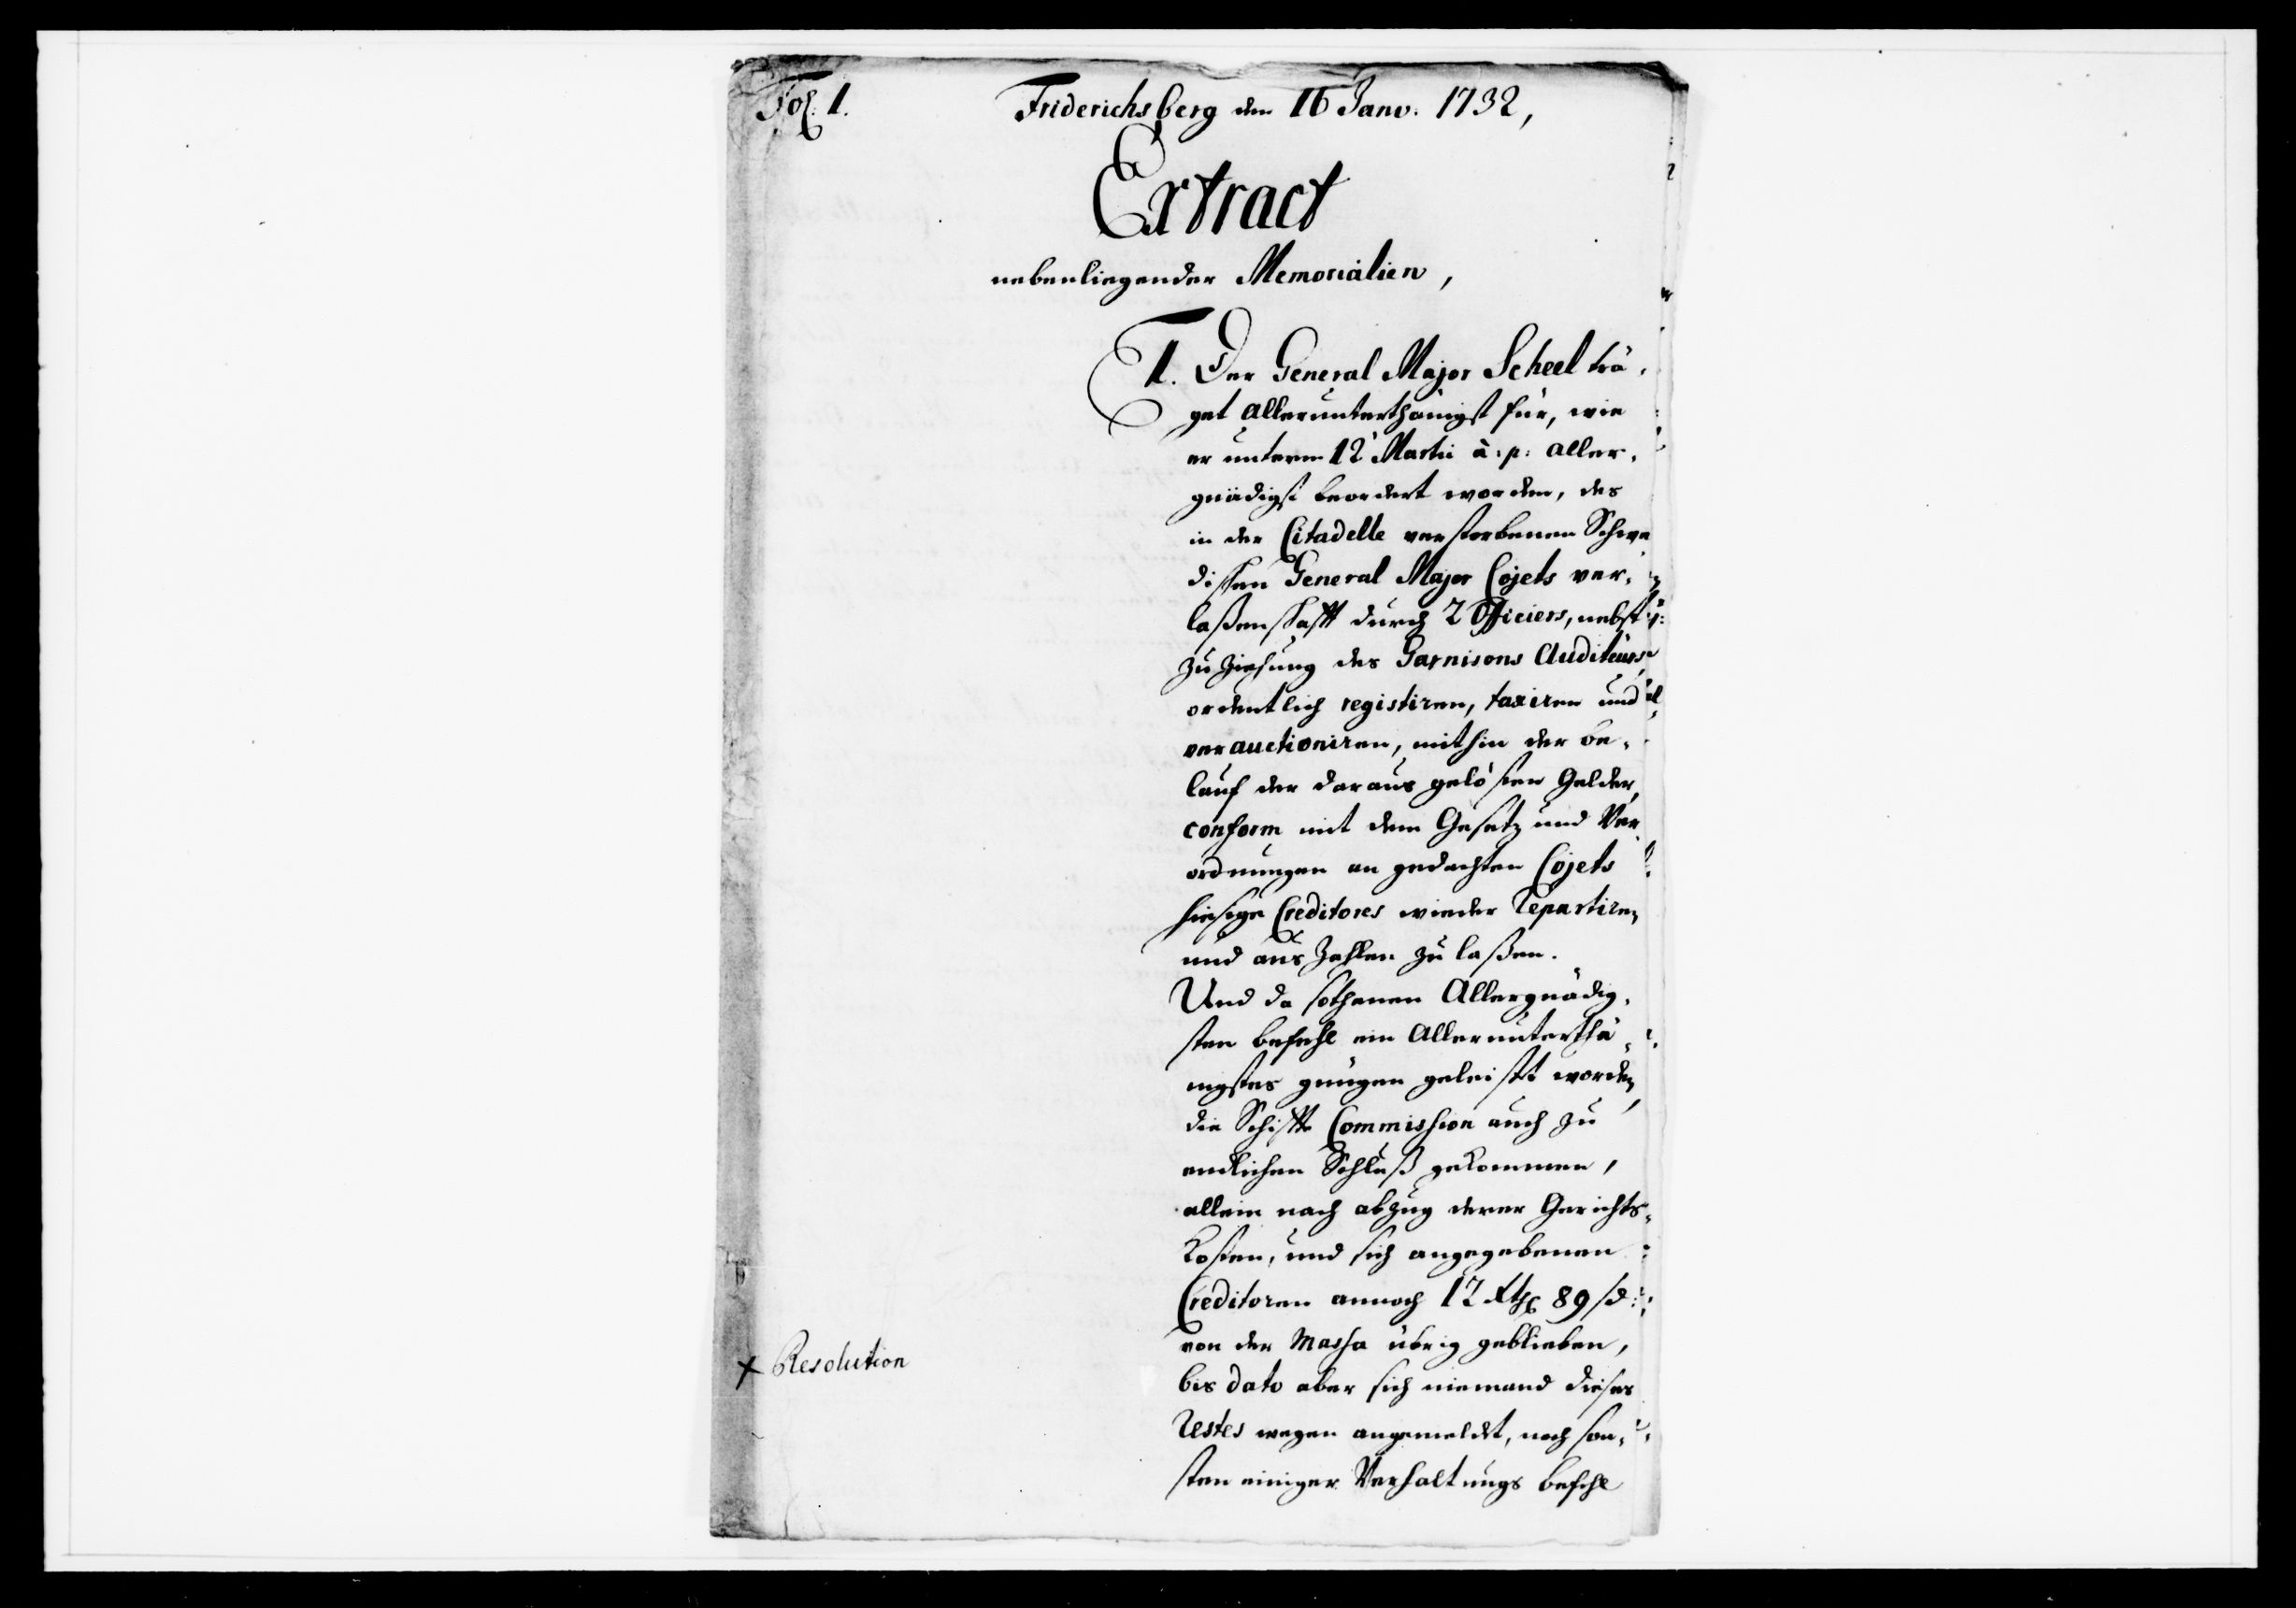 Fol. 1.
Friderichsberg den 16 Janv. 1732,
Extract
nebenliegender Memorialien,
1. Der General Major Scheel trä,
get allerunterthänigst für, wie
er unterm 12 Martii a: p: aller,
gnädigst beordert worden, des
in der Citadelle verstorbenen Schwe
dischen General Major Cojets ver,
laßenschafft durch 2 Officiers, nebst
Zuziehung des Garnisons Auditeurs,
ordentlich registiren, taxiren und
verauctioniren, mithin der be,
lauf der daraus gelösten Gelder,
conform mit dem Gesetz und Ver
ordnungen an gedachten Cojets
hiesige Creditores wieder repartiren
und aus Zahlen zu laßen.
Und da sothanen Allergnädig,
sten befehl ein Allerunterthä,
nigstes gnügen geleistet worden,
die Schiffte Commission auch zu
endlichen Schluß gekommen,
allein nach abzug derer Gerichts,
Kosten, und sich angegebenen
Creditoren annoch 12 Rthr 89 sd:
von der Massa übrig geblieben,
bis dato aber sich niemand dieses
Restes wegen angemeldet, noch son,
sten einiger Verhaltungs befehl
x Resolution